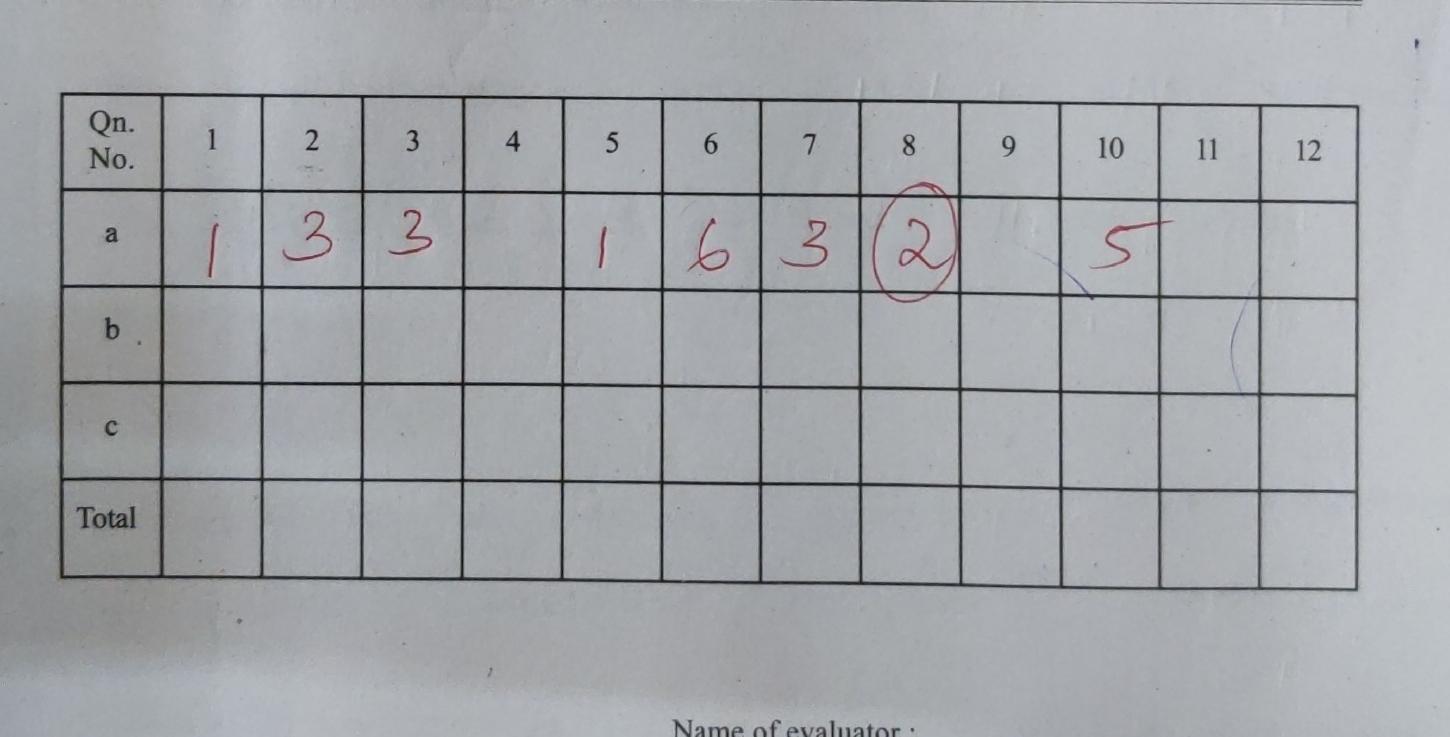 Qn. No. 1 2 3 4 5 6 7 8 9 10 11 12
a 1 3 3 1 6 3 2 5
b
c
Total
Name of evaluator :